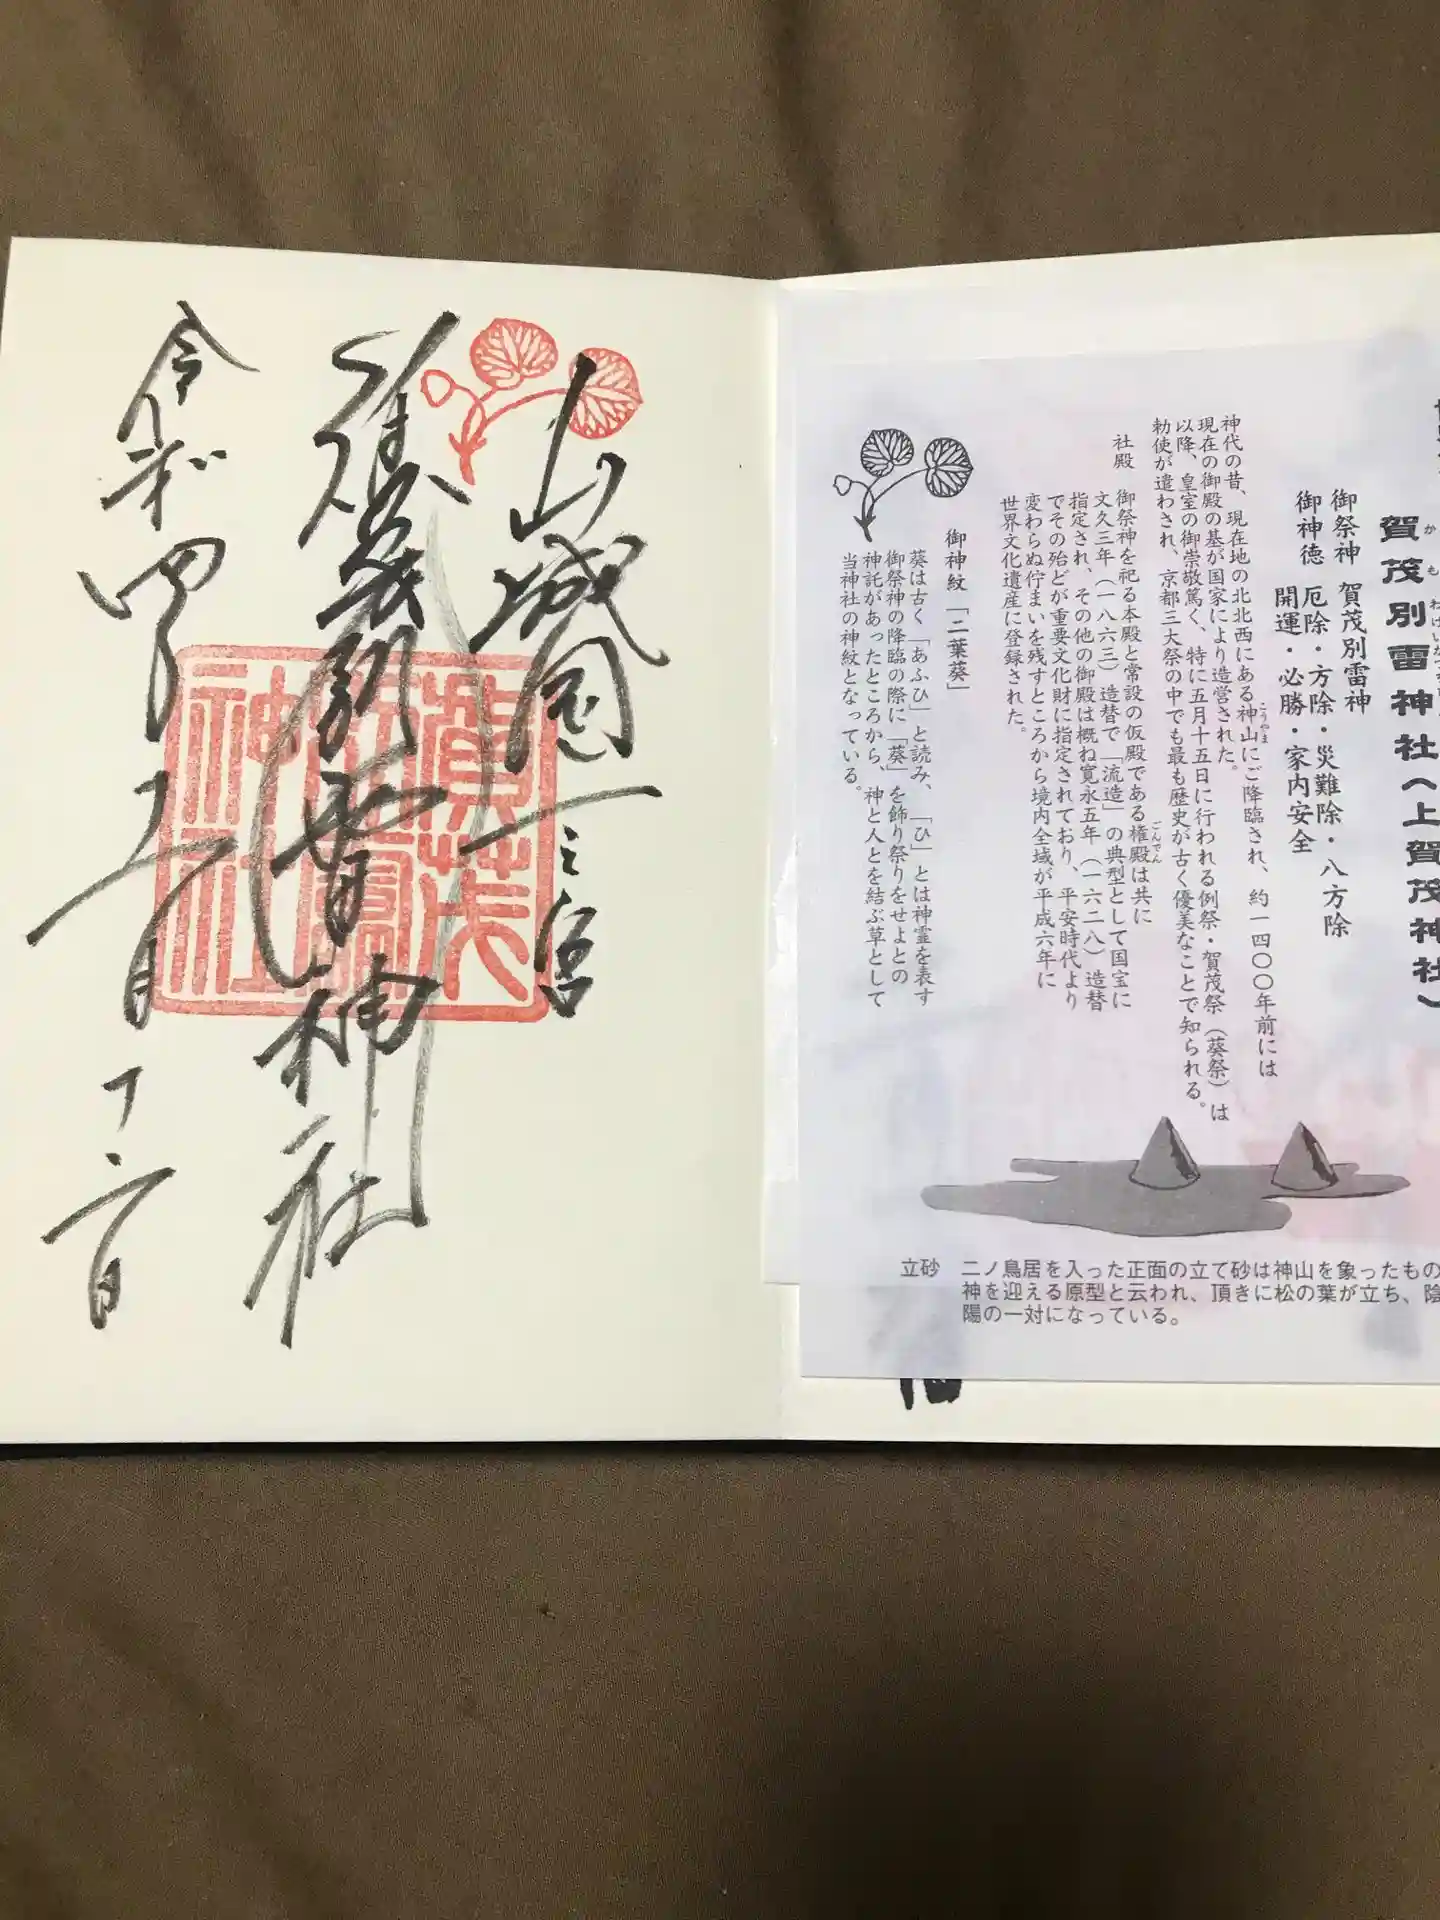 賀茂別雷神社(上賀茂神社)
御祭神 賀茂別雷神
御神徳 厄除・方除・災難除・八方除
開運・必勝・家内安全
神代の昔、現在地の北北西にある神山にご降臨され、約一四〇〇年前には
こうやま
現在の御殿の基が国家により造営された。
以降、皇室の御崇敬篤く、特に五月十五日に行われる例祭・賀茂祭(葵祭)は
勅使が遣わされ、京都三大祭の中でも最も歴史が古く優美なことで知られる。
社殿 御祭神を祀る本殿と常設の仮殿である権殿は共に
ごんでん
文久三年(一八六三)造替で「流造」の典型として国宝に
指定され、その他の御殿は概ね寛永五年(一六二八)造替
でその殆どが重要文化財に指定されており、平安時代より
変わらぬ佇まいを残すところから境内全域が平成六年に
世界文化遺産に登録された。
御神紋「二葉葵」
葵は古く「あふひ」と読み、「ひ」とは神霊を表す
御祭神の降臨の際に「葵」を飾り祭りをせよとの
神託があったところから、神と人とを結ぶ草として
当神社の神紋となっている。
立砂 二ノ鳥居を入った正面の立て砂は神山を象ったもの
神を迎える原型と云われ、頂きに松の葉が立ち、陰
陽の一対になっている。
山城国一之宮
賀茂別雷神社
令和四年
月十六日